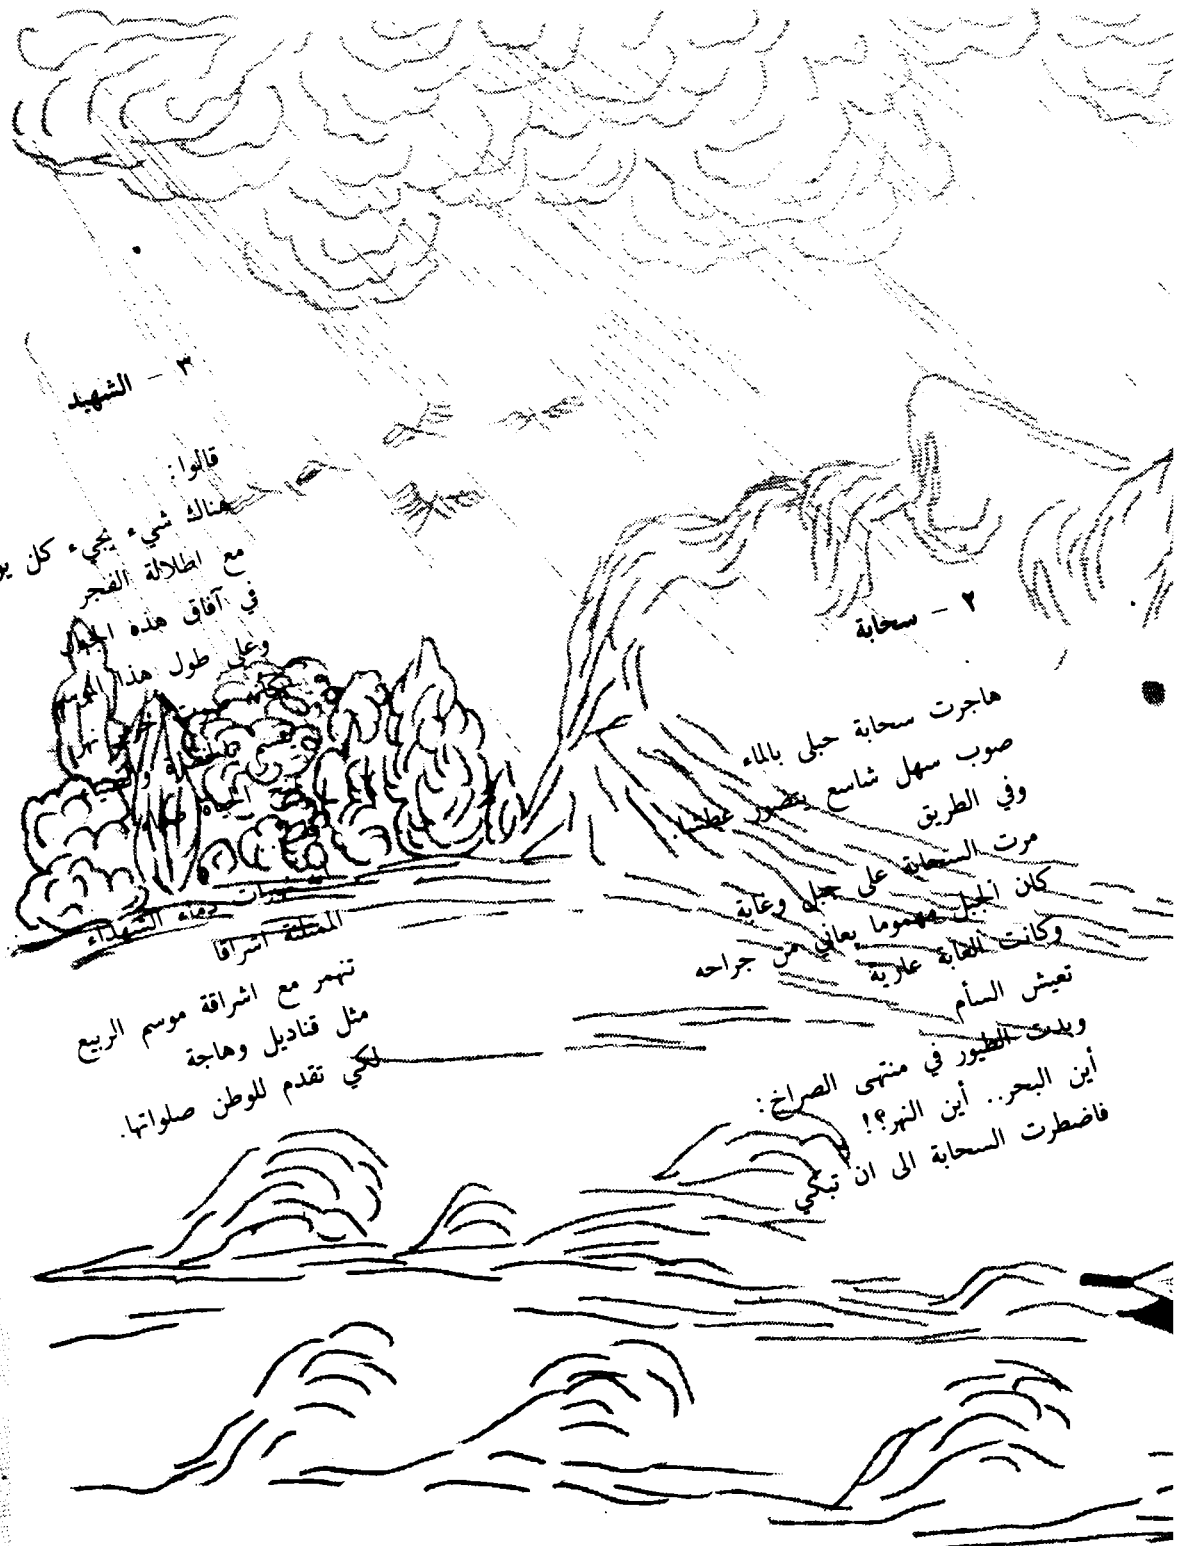 ٢ - سحابة
هاجرت سحابة حبلى بالماء
صوب سهل شاسع يتضور عطشا.
وفي الطريق
مرت السحابة على جبل وغابة
كان الجبل مهموما يعاني من جراحه
وكانت الغابة عارية
تعيش السأم
وبدت الطيور في منتهى الصراخ:
أين البحر.. أين النهر؟!
فاضطرت السحابة الى ان تبكي
٣ - الشهيد
قالوا:
هناك شيء يجيء كل
مع اطلالة الفجر
في آفاق هذه الجبال
وعلى طول هذا الموسم
نهر
الحياة
دماء الشهداء
الممتلئة اشراقا
تنهمر مع اشراقة موسم الربيع
مثل قناديل وهاجة
لكي تقدم للوطن صلواتها.